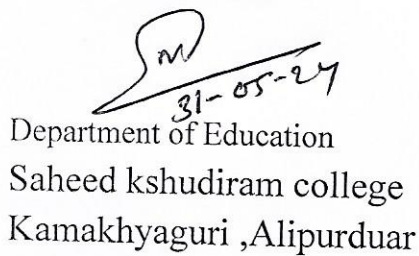 31-05-24
Department of Education
Saheed kshudiram college
Kamakhyaguri ,Alipurduar